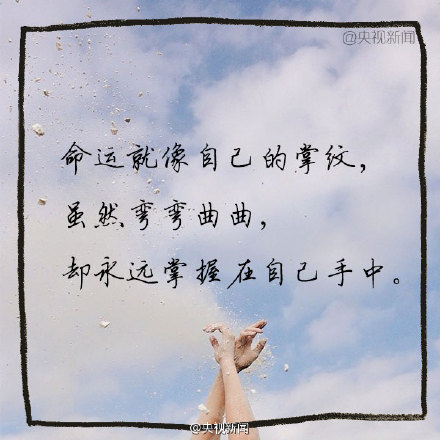 @央视新闻
命运就像自己的掌纹，
虽然弯弯曲曲，
却永远掌握在自己手中。
@央视新闻